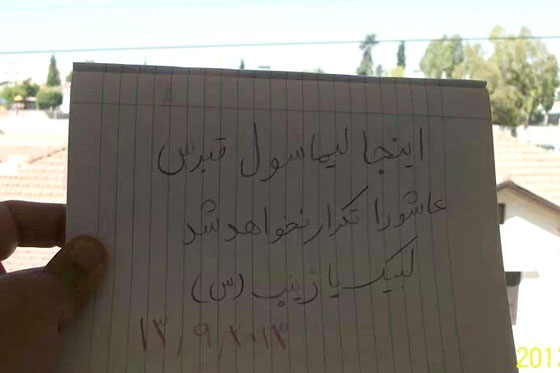 اینجا لیماسول قبرس
عاشورا تکرار نخواهد شد
لبیک یا زینب (س)
۱۳/۹/۲۰۱۳
2013